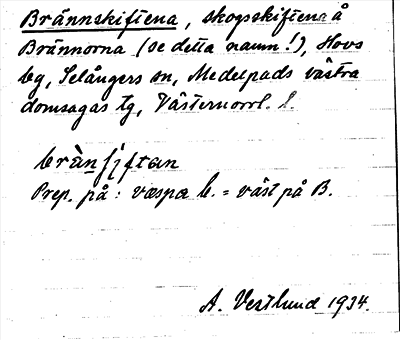 Brännskiftena, skogsskiftena å
Brännorna (se detta namn!), Hovs
by, Selångers sn, Medelpads västra
domsagas tg, Västernorrl. l.
brànʃiftan
Prep. på: væspa b. = väst på B.
A. Vestlund 1934.